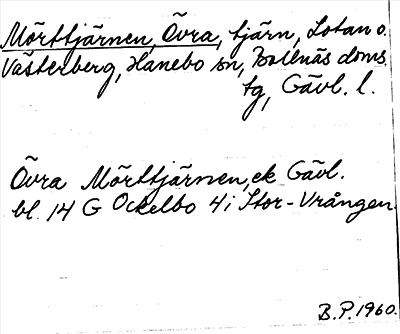 Mörttjärnen, Övra, tjärn, Lotan o.
Västerberg, Hanebo sn, Bollnäs doms.
tg, Gävl. l.
Övra Mörttjärnen, ek Gävl.
bl. 14 G Ockelbo 4i Stor-Vrången.
B.P. 1960.